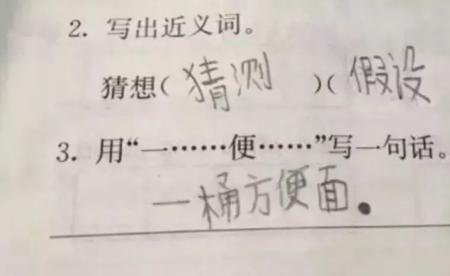 2. 写出近义词。
猜想(猜测)(假设
3. 用“一……便……”写一句话。
一桶方便面。